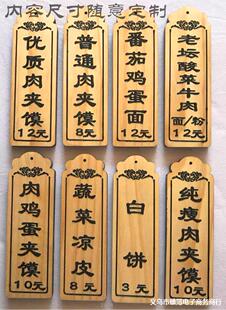 内容尺寸随意定制
优质肉夹馍
12元
普通肉夹馍
8元
番茄鸡蛋面
12元
老坛酸菜牛肉
面/粉
12元
肉鸡蛋夹馍
10元
蔬菜凉皮
8元
白饼
3元
纯瘦肉夹馍
10元